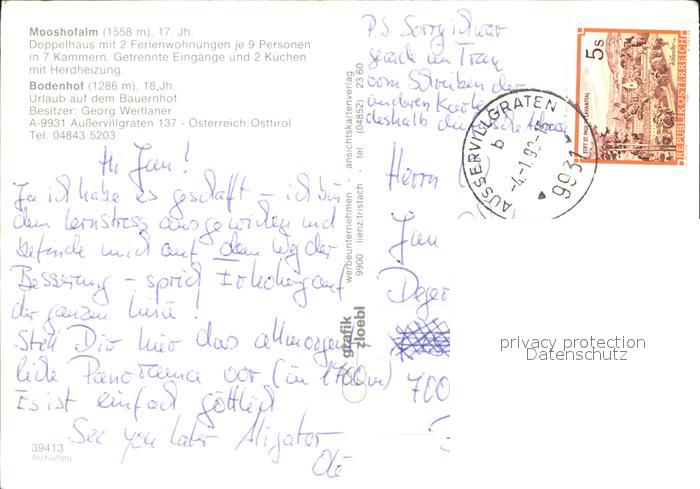 Mooshofalm (1558 m), 17. Jh.
Doppelhaus mit 2 Ferienwohnungen je 9 Personen
in 7 Kammern. Getrennte Eingänge und 2 Küchen
mit Herdheizung.
Bodenhof (1286 m), 18.Jh.
Urlaub auf dem Bauernhof
Besitzer: Georg Weitlaner
A-9931 Außervillgraten 137 - Österreich, Osttirol
Tel. 04843/5203
Hi Jan!
Ja ich habe es geschafft – ich bin
dem Lernstress ausgewichen und
befinde mich auf dem Weg der
Besserung – sprich Erholung auf
der ganzen Linie!
Stell Dir hier das allmorgent-
liche Panorama vor (in 1700m)
Es ist einfach göttlich
See you later Aligator
39413
Archivfoto
werbeunternehmen - ansichtskartenverlag
9900 lienz/tristach - tel. (04852) 23 60
grafik
zloebl
PS Sorry ich war
gerade im Tran
vom Schreiben der
anderen Karten
deshalb die
Herrn
Jan
Deger
700
AUSSERVILLGRATEN
b
9931
5s
STIFT ST. PAUL IM LAVANTTAL
REPUBLIK ÖSTERREICH
privacy protection
Datenschutz